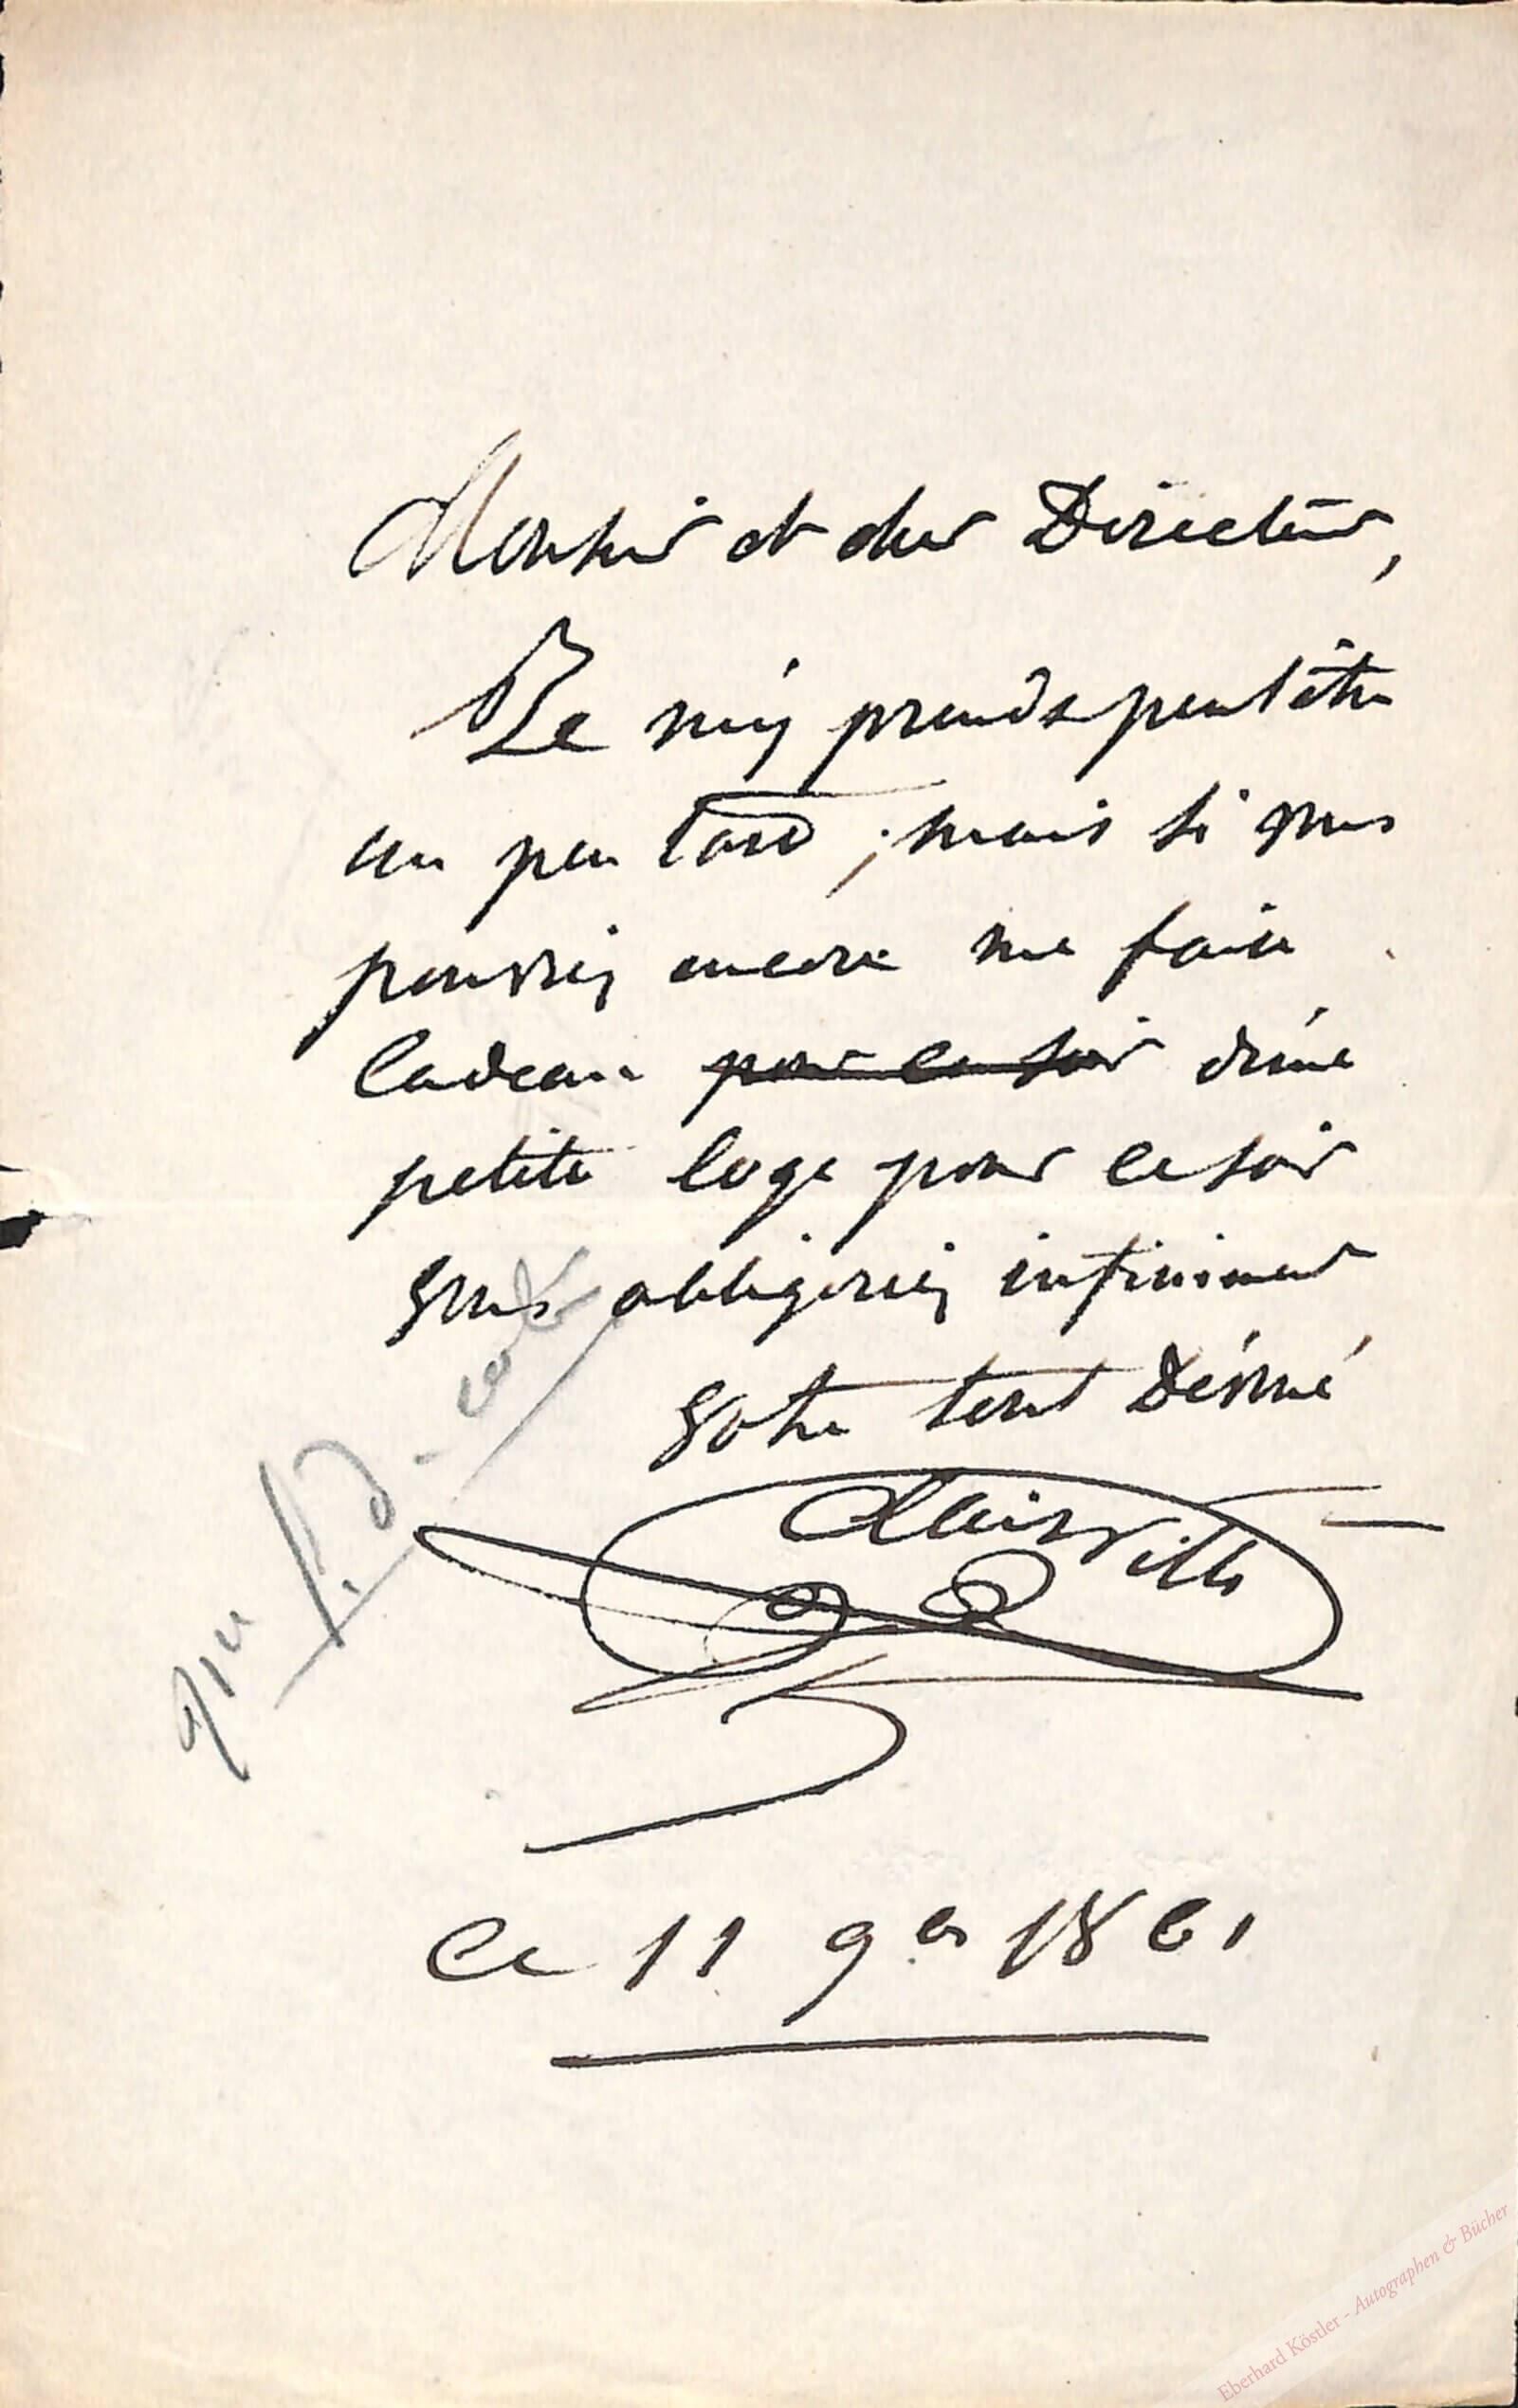 Monsieur et cher Directeur,
Je m'y prends peut être
un peu tard ; mais si vous
pouviez encore me faire
cadeau pour ce soir d'une
petite loge pour ce soir
vous obligeriez infiniment
Votre tout dévoué
Clairville
Ce 11 9bre 1861
Eberhard Köstler - Autographen & Bücher